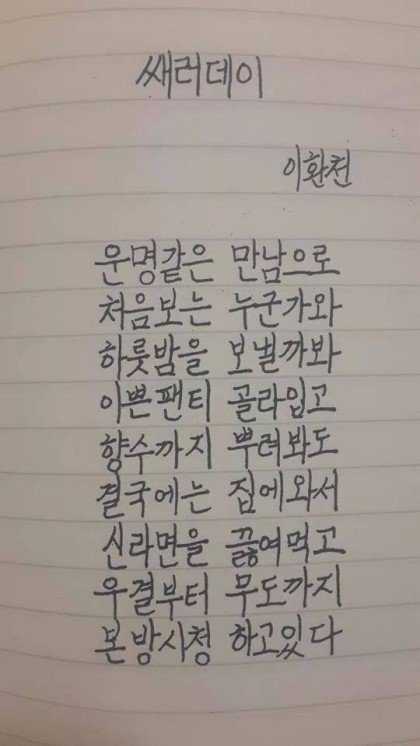 쌔러데이
이환천
운명같은 만남으로
처음보는 누군가와
하룻밤을 보낼까봐
이쁜팬티 골라입고
향수까지 뿌려봐도
결국에는 집에와서
신라면을 끓여먹고
우결부터 무도까지
본방시청 하고있다